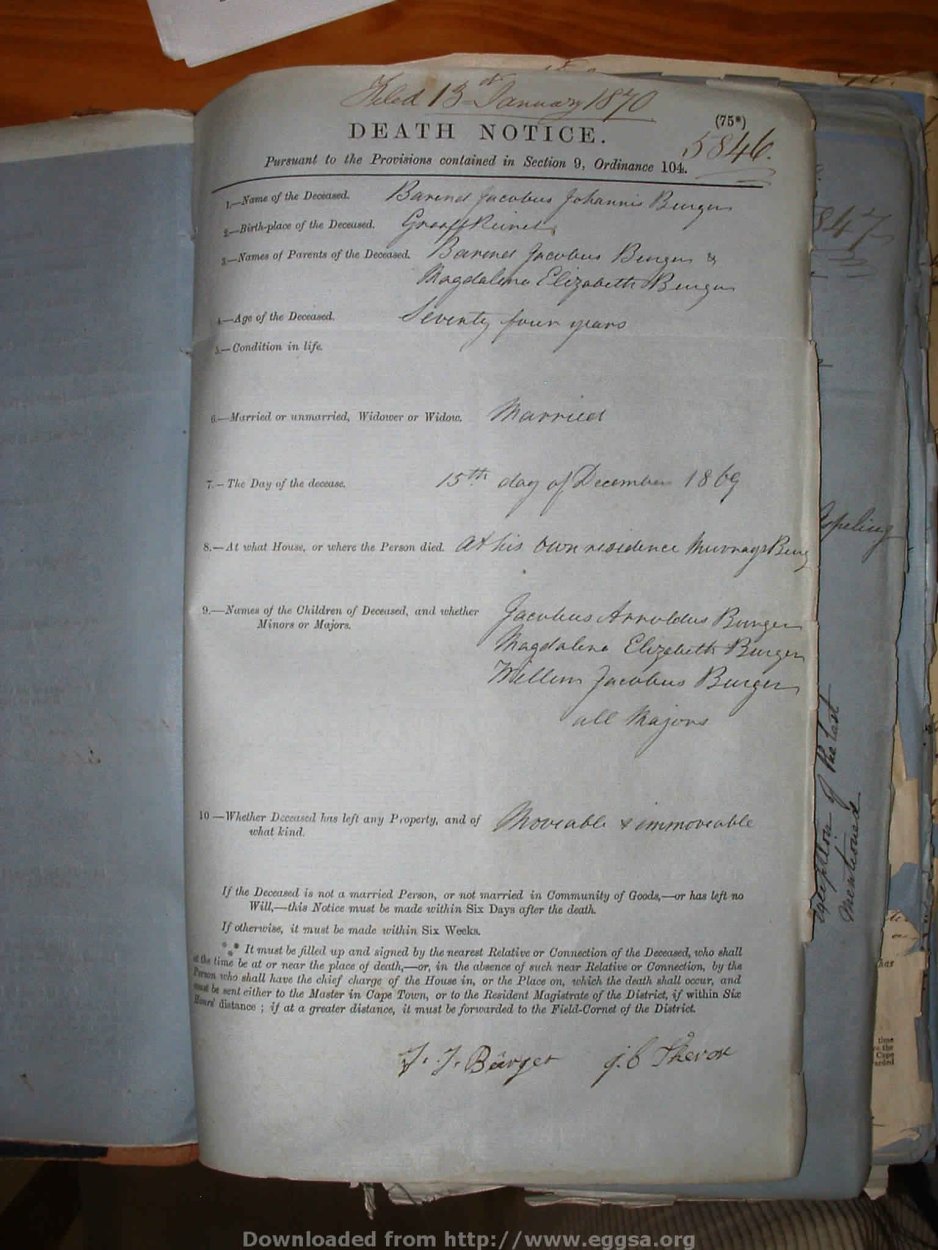 Filed 13th January 1870
(75*)
DEATH NOTICE.
5846.
Pursuant to the Provisions contained in Section 9, Ordinance 104.
1.—Name of the Deceased. Barend Jacobus Johannis Burger
2.—Birth-place of the Deceased. Graaff Reinet
3.—Names of Parents of the Deceased. Barend Jacobus Burger &
Magdalena Elizabeth Burger
4.—Age of the Deceased. Seventy four years
5.—Condition in life.
6.—Married or unmarried, Widower or Widow. Married
7.—The Day of the decease. 15th day of December 1869
8.—At what House, or where the Person died. At his own residence Murraysburg
9.—Names of the Children of Deceased, and whether
Minors or Majors.
Jacobus Arnoldus Burger
Magdalena Elizabeth Burger
Willem Jacobus Burger
all Majors
10—Whether Deceased has left any Property, and of
what kind.
Moveable & immoveable
If the Deceased is not a married Person, or not married in Community of Goods,—or has left no
Will,—this Notice must be made within Six Days after the death.
If otherwise, it must be made within Six Weeks.
*** It must be filled up and signed by the nearest Relative or Connection of the Deceased, who shall
at the time be at or near the place of death,—or, in the absence of such near Relative or Connection, by the
Person who shall have the chief charge of the House in, or the Place on, which the death shall occur, and
must be sent either to the Master in Cape Town, or to the Resident Magistrate of the District, if within Six
Hours' distance ; if at a greater distance, it must be forwarded to the Field-Cornet of the District.
Burger
847
of the last
mentioned
Downloaded from http://www.eggsa.org